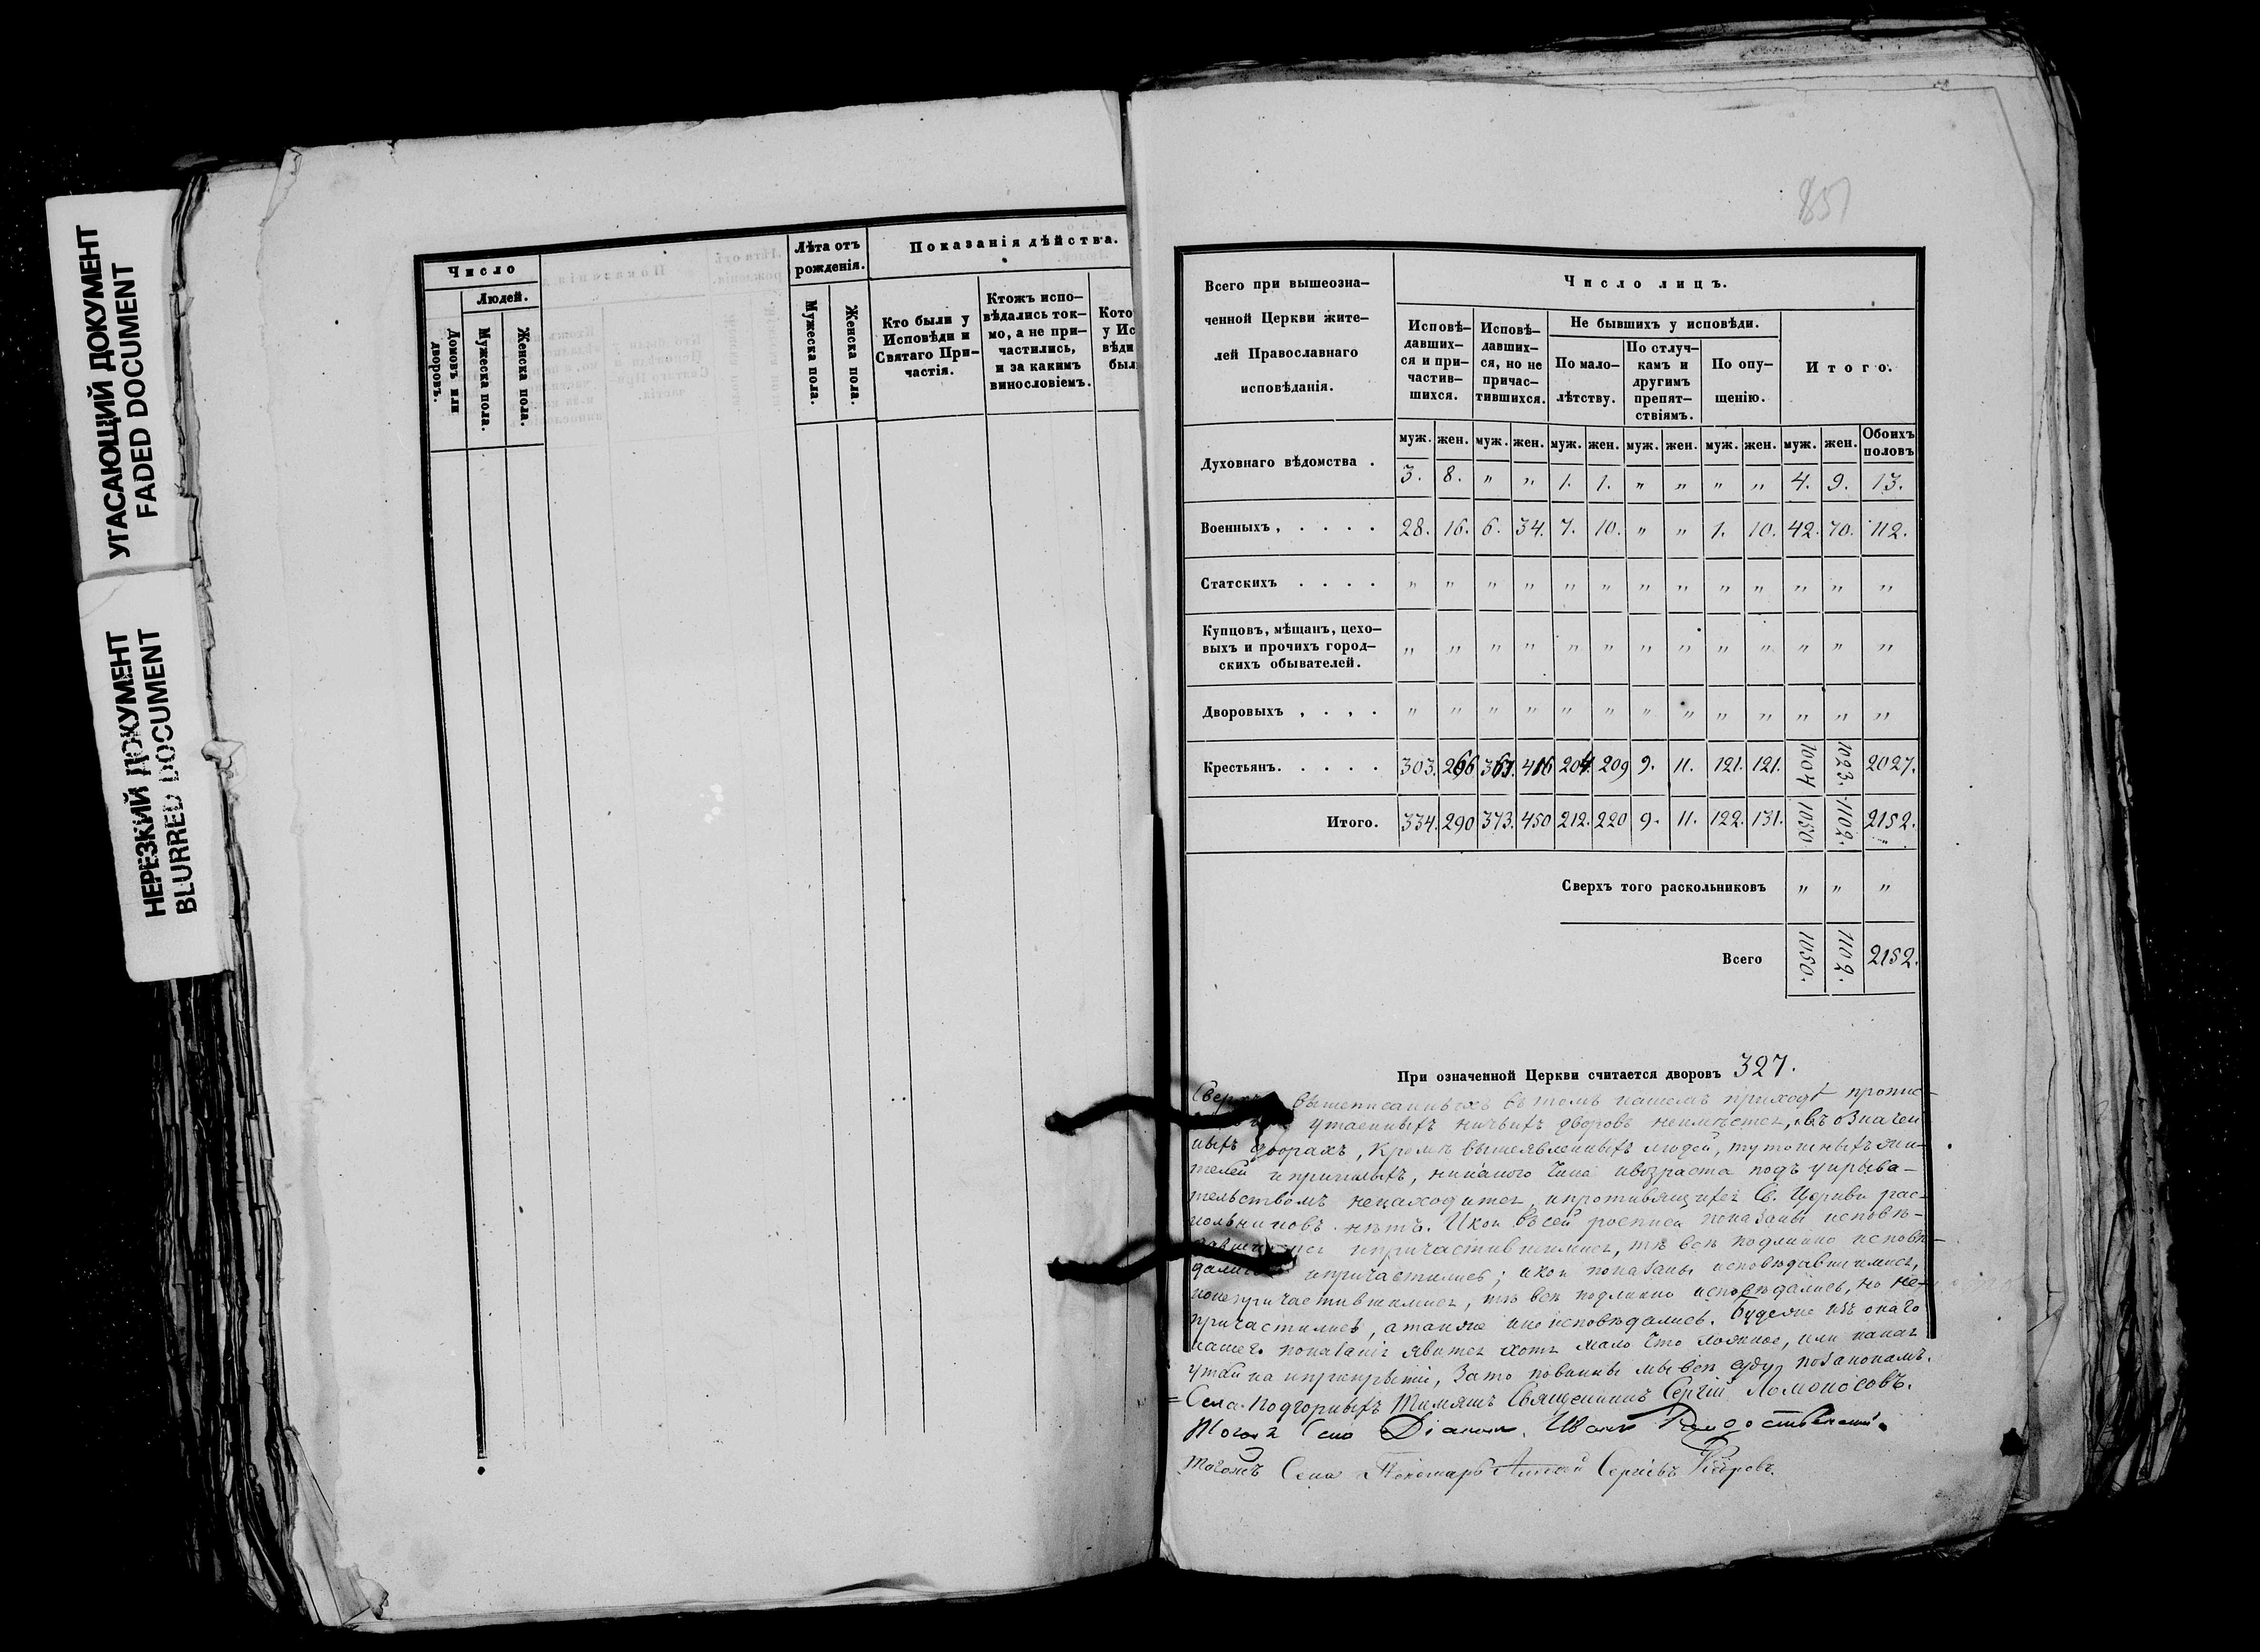 УГАСАЮЩИЙ ДОКУМЕНТ
FADED DOCUMENT
НЕРЕЗКИЙ ДОКУМЕНТ
BLURRED DOCUMENT
Число
Людей.
Домовъ или дворовъ.
Мужеска пола.
Женска пола.
Лѣта отъ рожденія.
Мужеска пола.
Женска пола.
Показанія дѣйства.
Кто были у
Исповѣди и
Святаго При-
частія.
Ктожъ испо-
вѣдались ток-
мо, а не при-
частились,
и за какимъ
винословіемъ.
Кото
у Ис
вѣди
был
851
Всего при вышеозна-
ченной Церкви жите-
лей Православнаго
исповѣданія.
Число лицъ.
Исповѣ-
давших-
ся и при-
частив-
шихся.
Исповѣ-
давших-
ся, но не
причас-
тившихся.
Не бывшихъ у исповѣди.
По мало-
лѣтству.
По отлуч-
камъ и
другимъ
препят-
ствіямъ.
По опу-
щенію.
Итого.
муж. жен. муж. жен. муж. жен. муж. жен. муж. жен. муж. жен. Обоихъ половъ
Духовнаго вѣдомства . 3. 8. " " 1. 1. " " " " 4. 9. 13.
Военныхъ, . . . . 28. 16. 6. 34. 7. 10. " " 1. 10. 42. 70. 112.
Статскихъ . . . . " " " " " " " " " " " " "
Купцовъ, мѣщанъ, цехо-
выхъ и прочихъ город-
скихъ обывателей. " " " " " " " " " " " " "
Дворовыхъ , . , . " " " " " " " " " " " " "
Крестьянъ. . . . . 303. 266 367. 416 204. 209 9. 11. 121. 121. 1004 1023. 2027.
Итого. 334. 290 373. 450 212. 220 9. 11. 122. 131. 1050 1102. 2152.
Сверхъ того раскольниковъ " " "
Всего 1050. 1102. 2152.
При означенной Церкви считается дворовъ 327.
вышеписанныхъ въ томъ нашемъ приходѣ пропис-
утаенныхъ ничьихъ дворовъ неимѣется, въ означен
ныхъ дворахъ, кромѣ вышеявленныхъ людей, тутошныхъ жи-
телей и пришлыхъ, никакого чина ивозраста подъ укрыва-
тельствомъ ненаходится, ипротивящихся Св. Церкви рас-
кольниковъ нѣтъ. Икои въ сей росписи показаны исповѣ-
ипричастившимися, тѣ всѣ подлинно исповѣ-
дались ипричастились; икои показаны исповѣдавшимися,
нонепричастившимися, тѣ всѣ подлинно исповѣдались, но не-
причастились, атакже инеисповѣдались. Будеже изъ онаго
нашего показанія явится хотя мало что ложное, или какая
утайка иприкрытіе, Зато повинны мы всѣ суду позаконамъ.
= Села Подгорныхъ Тимяшъ Священникъ Сергій Ломоносовъ.
Тогожъ Села Діаконъ Иванъ
тогожъ Села Пономарь Сергѣевъ